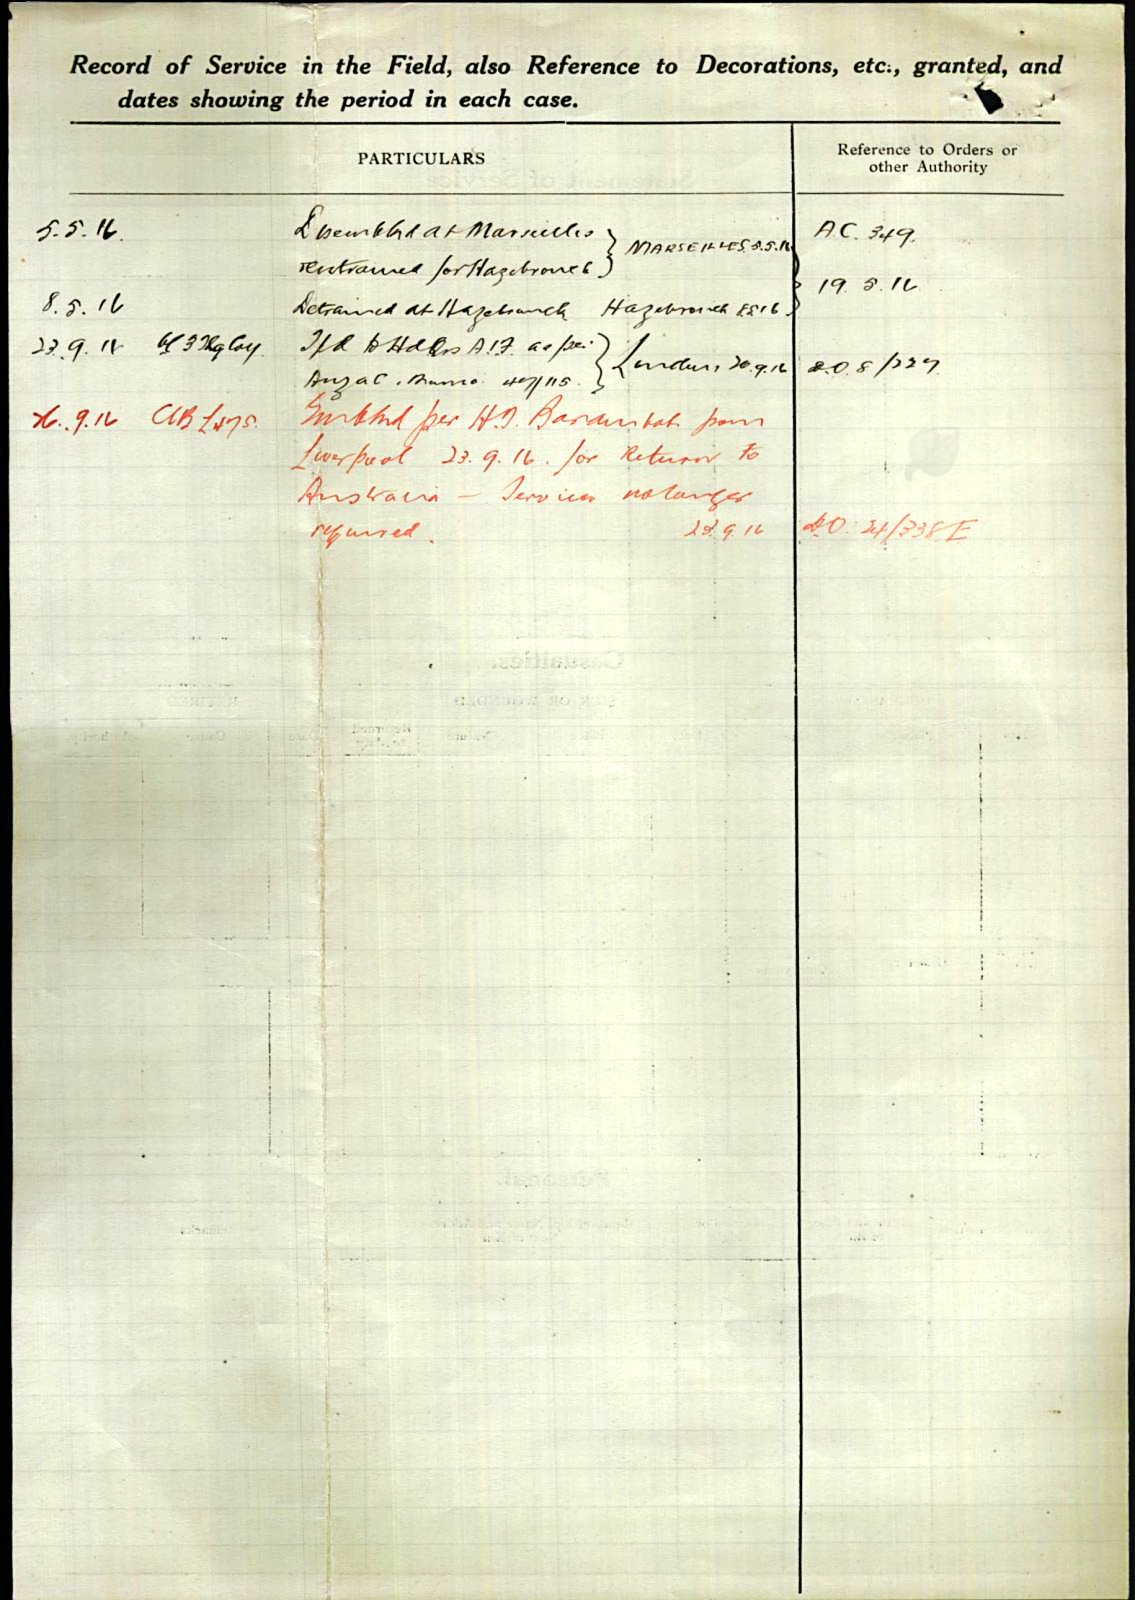 Record of Service in the Field, also Reference to Decorations, etc., granted, and
dates showing the period in each case.
PARTICULARS
Reference to Orders or
other Authority
5.5.16. Disembkd at Marseilles A.C. 349.
entrained for Hazebrouck MARSEILLES 5.5.16
19.5.16
8.5.16 Detrained at Hazebrouck Hazebrouck 8.5.16
23.9.16 Tfd to Hdqrs A.I.F. as per
Anzac London 20.9.16 D.O. 8/227
26.9.16 Embkd per H.T. Barambah from
Liverpool 23.9.16. for Return to
Australia – Services no longer
required. 23.9.16 D.O. 24/338E
Casualties.
Personal.